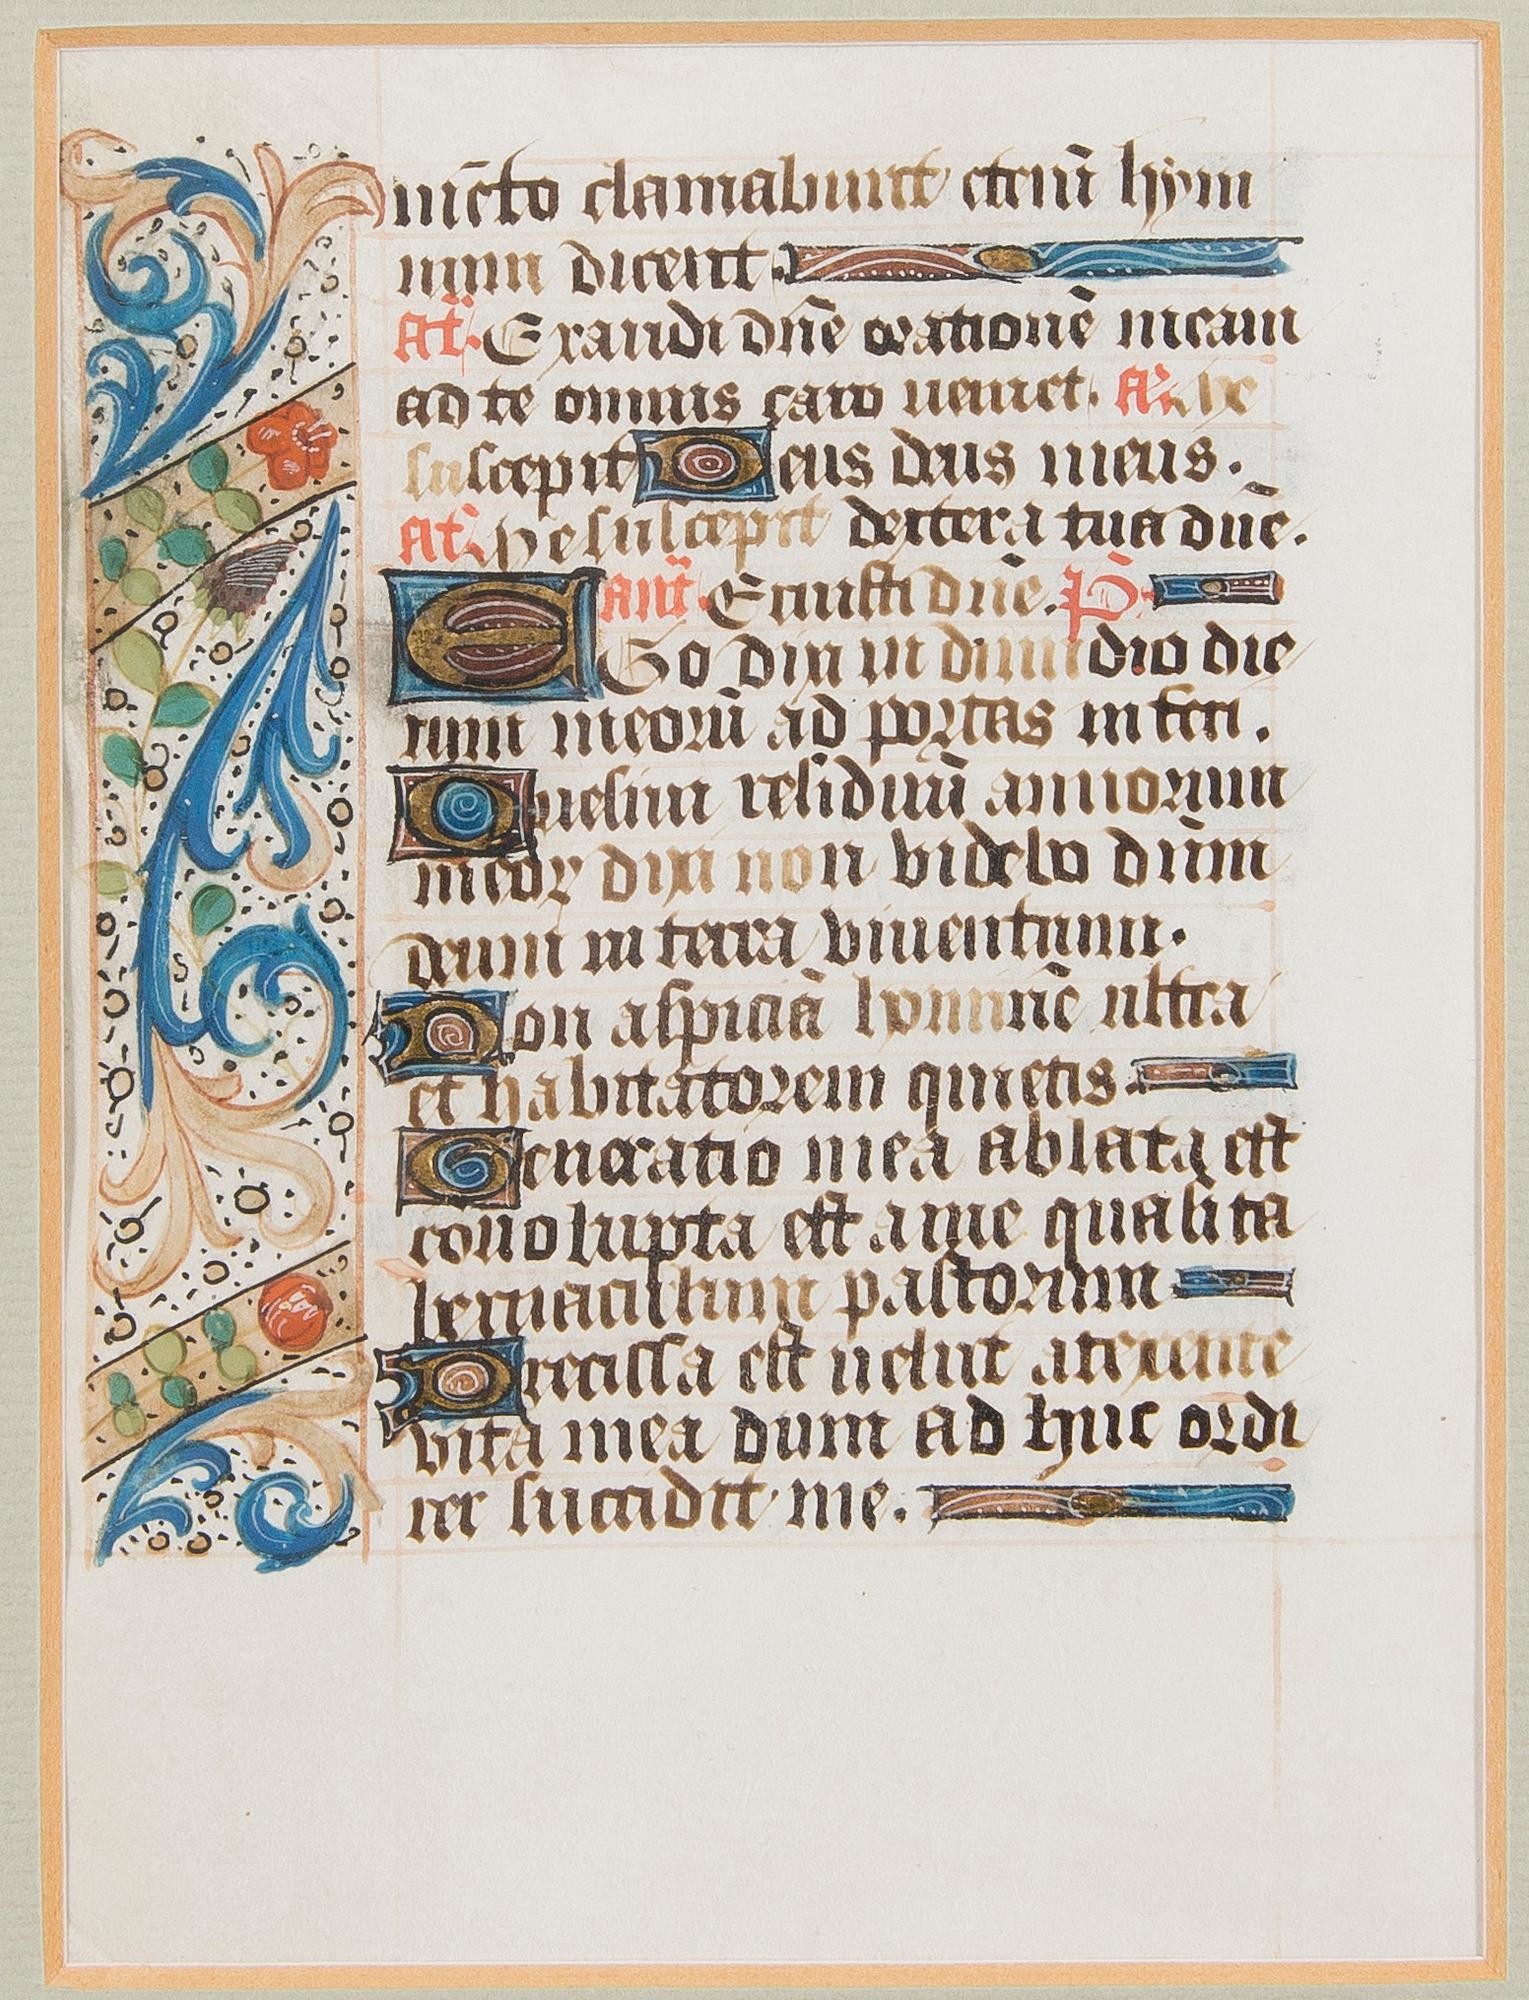 mēto clamabunt eteñi hym
num dicent.
Añ. Exaudi dñe orationē meam
ad te omnis caro veniet. Añ. Me
suscepit Deus deus meus.
Añ. Me suscepit dextera tua dñe.
añt. Eruisti dñe. P̃
EGo dixi in dimidio die
rum meorū ad portas inferi.
Quesiui residuū annorum
meoꝝ dixi non videbo dñm
deum in terra viuentium.
Non aspiciā hominē ultra
et habitatorem quietis.
Generatio mea ablata est
conuolupta est a me quasi ta
bernaculum pastorum
Precissa est uelut a texente
vita mea dum ad huc ordi
rer succidit me.